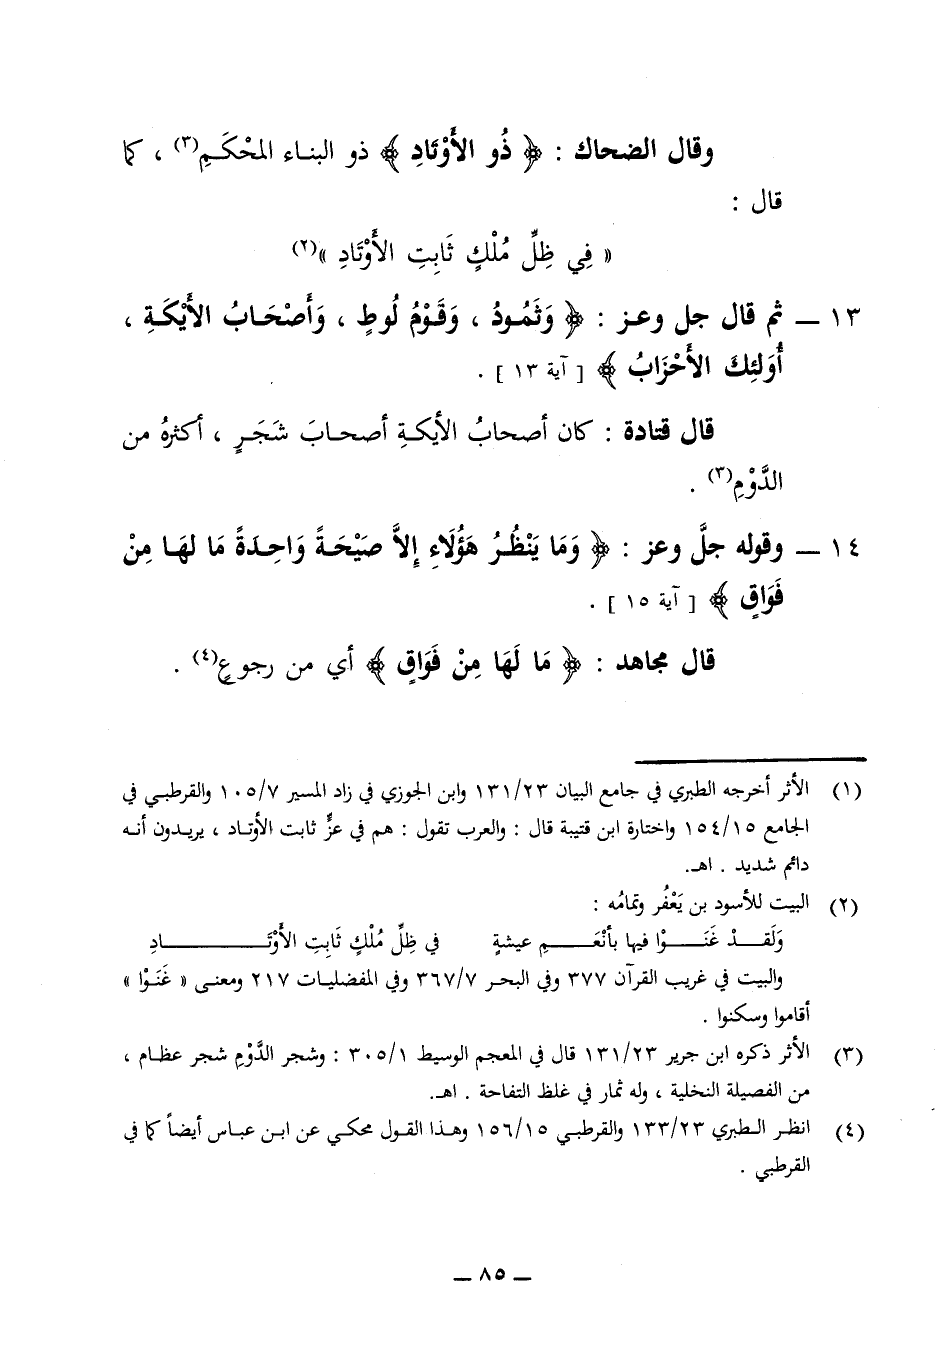 وقال الضحاك : ﴿ ذُو الأَوْتَادِ ﴾ ذو البناء المحْكَمِ(٣) ، كما
قال :
« فِي ظِلِّ مُلْكٍ ثَابِتِ الأَوْتَادِ »(٢)
١٣ ــ ثم قال جل وعز : ﴿ وَثَمُودُ ، وَقَوْمُ لُوطٍ ، وَأَصْحَابُ الأَيْكَةِ ،
أُوَلئِكَ الأَحْزَابُ ﴾ [ آية ١٣ ] .
قال قتادة : كان أصحابُ الأيكةِ أصحابَ شَجَرٍ ، أكثرهُ من
الدَّوْمِ(٣) .
١٤ ــ وقوله جلَّ وعز : ﴿ وَمَا يَنْظُرُ هَؤُلَاءِ إِلاَّ صَيْحَةً وَاحِدَةً مَا لهَا مِنْ
فَوَاقٍ ﴾ [ آية ١٥ ] .
قال مجاهد : ﴿ مَا لَهَا مِنْ فَوَاقٍ ﴾ أي من رجوعٍ(٤) .
(١) الأثر أخرجه الطبري في جامع البيان ١٣١/٢٣ وابن الجوزي في زاد المسير ١٠٥/٧ والقرطبي في
الجامع ١٥٤/١٥ واختارة ابن قتيبة قال : والعرب تقول : هم في عزٍّ ثابت الأوتاد ، يريدون أنه
دائم شديد . اهـ.
(٢) البيت للأسود بن يَعْفُر وتمامُه :
وَلَقَدْ غَنَوْا فيها بأَنْعَمِ عيشةٍ في ظِلِّ مُلْكٍ ثَابِتِ الأَوْتَادِ
والبيت في غريب القرآن ٣٧٧ وفي البحر ٣٦٧/٧ وفي المفضليات ٢١٧ ومعنى « غَنَوْا »
أقاموا وسكنوا .
(٣) الأثر ذكره ابن جرير ١٣١/٢٣ قال في المعجم الوسيط ٣٠٥/١ : وشجر الدَّوْمِ شجر عظام ،
من الفصيلة النخلية ، وله ثمار في غلظ التفاحة . اهـ.
(٤) انظر الطبري ١٣٣/٢٣ والقرطبي ١٥٦/١٥ وهذا القول محكي عن ابن عباس أيضاً كما في
القرطبي .
ــ ٨٥ ــ